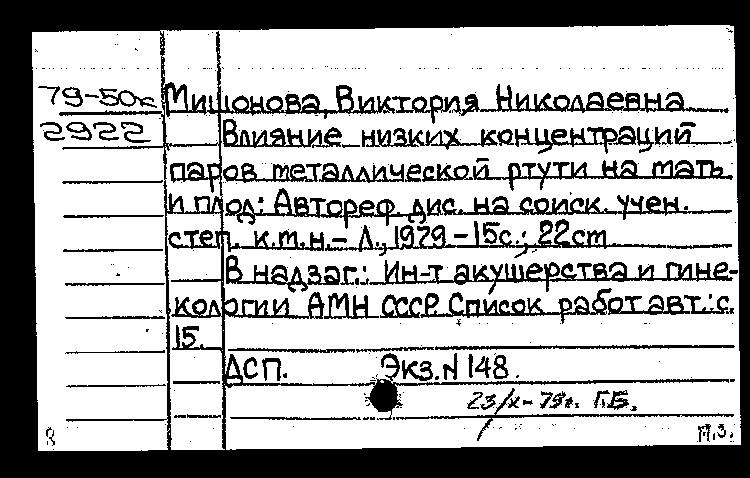 79-50к Мишонова, Виктория Николаевна
2922 Влияние низких концентраций
паров металлической ртути на мать
и плод: Автореф. дис. на соиск. учен.
степ. к.т.н. - Л., 1979 - 15с.; 22cm
В надзаг.: Ин-т акушерства и гине-
кологии АМН СССР. Список работ авт.: с.
15.
ДСП. Экз. N 148.
23/X-79г. Г.Б.
8 М.З.